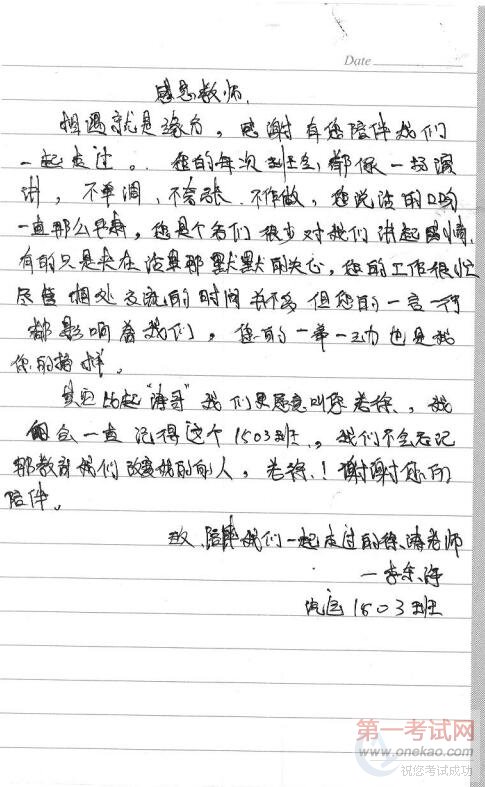 Date
感恩教师
相遇就是缘分，感谢有您陪伴我们
一起走过。您的每次班会，都像一场演
讲，不单调、不夸张、不作做，您说话的口吻
一直那么早熟，您是个名们很少对我们讲起煽情，
有的只是夹在话里那默默的关心，您的工作很忙
尽管相处交流的时间并不多但您的一言一行
都影响着我们，您的一举一动也是我
们的榜样。
其实比起“涛哥”我们更愿意叫您老徐，我
们会一直记得这个1503班，我们不会忘记
那教育我们改变我们的人，老徐！谢谢您的
陪伴。
致陪伴我们一起走过的徐涛老师
一李东
1503班
第一考试网
www.onekao.com
祝您考试成功